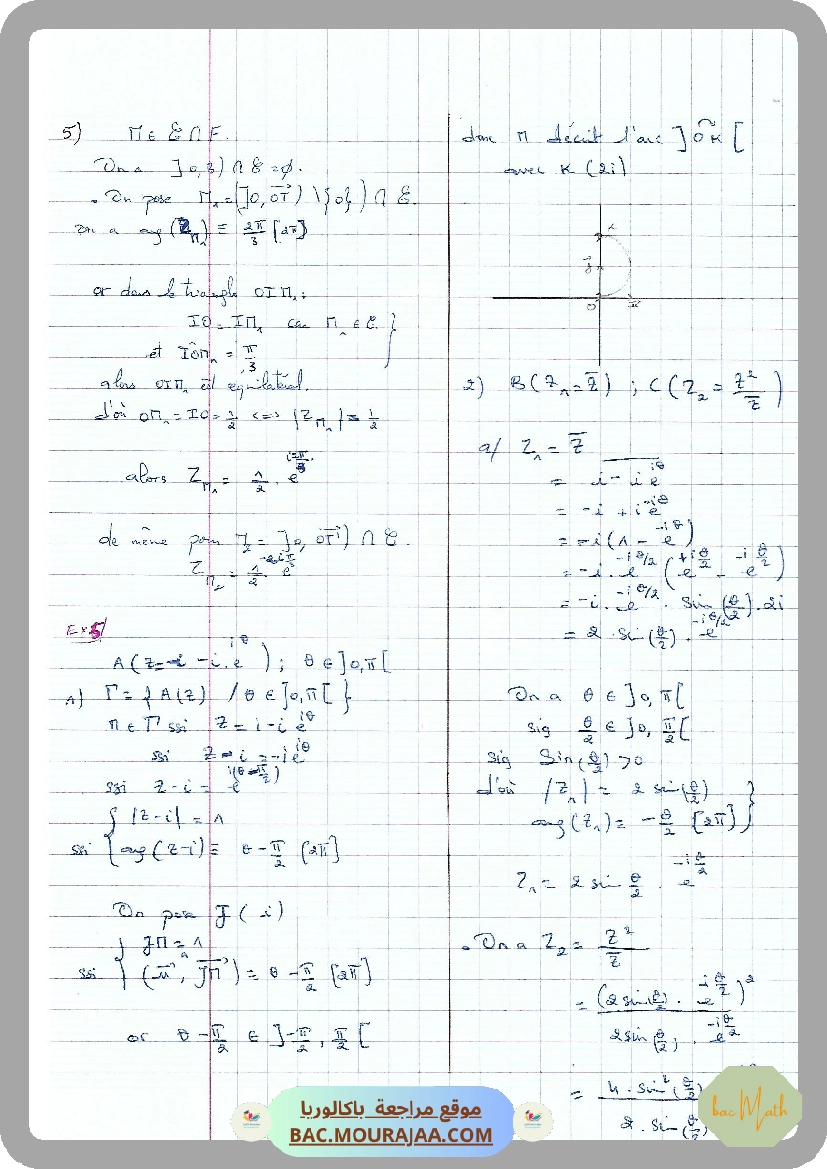 5) M ∈ ℰ ∩ F.
On a ]0,3) ∩ ℰ = ∅.
. On pose M₁ = (]O, OT) \ {0}) ∩ ℰ.
on a arg(Z_M₁) ≡ 2π/3 [2π]
or dans le triangle OIM₁ :
IO = IM₁ car M₁ ∈ ℰ }
et IÔM₁ = π/3
alors OIM₁ est equilatéral.
d'où OM₁ = IO = 1/2 <=> |Z_M₁| = 1/2
alors Z_M₁ = 1/2 . e
de même pour M₂ = ]O, OT') ∩ ℰ.
Z_M₂ = 1/2 . e
Ex 5/
A(Z = i - i.e^{iθ}) ; θ ∈ ]0,π[
1) Γ = { A(Z) / θ ∈ ]0,π[ }
M ∈ Γ ssi Z = i - i e^{iθ}
ssi Z - i = -i e^{iθ}
ssi Z - i = e^{i(θ - π/2)}
ssi { |Z-i| = 1
arg(Z-i) ≡ θ - π/2 [2π]
On pose J( i )
ssi { JM = 1
(u, JM) ≡ θ - π/2 [2π]
or θ - π/2 ∈ ]-π/2, π/2[
donc M décrit l'arc ]OK[
avec K (2i)
K
J
O
2) B(Z₁ = Z̅) ; C(Z₂ = Z²/Z̅)
a/ Z₁ = Z̅
= \overline{i - i e^{iθ}}
= -i + i e^{-iθ}
= -i(1 - e^{-iθ})
= -i . e^{-iθ/2} (e^{+iθ/2} - e^{-iθ/2})
= -i . e^{-iθ/2} . sin(θ/2) . 2i
= 2 . sin(θ/2) . e^{-iθ/2}
On a θ ∈ ]0, π[
sig θ/2 ∈ ]0, π/2[
sig Sin(θ/2) > 0
d'où |Z₁| = 2 sin(θ/2) }
arg(Z₁) ≡ -θ/2 [2π]
Z₁ = 2 sin θ/2 . e^{-iθ/2}
. On a Z₂ = Z²/Z̅
= (2 sin(θ/2) . e^{-iθ/2})² / 2 sin(θ/2) . e^{-iθ/2}
= 4 . sin²(θ/2) / 2 . sin(θ/2)
موقع مراجعة باكالوريا
BAC.MOURAJAA.COM
bac Math